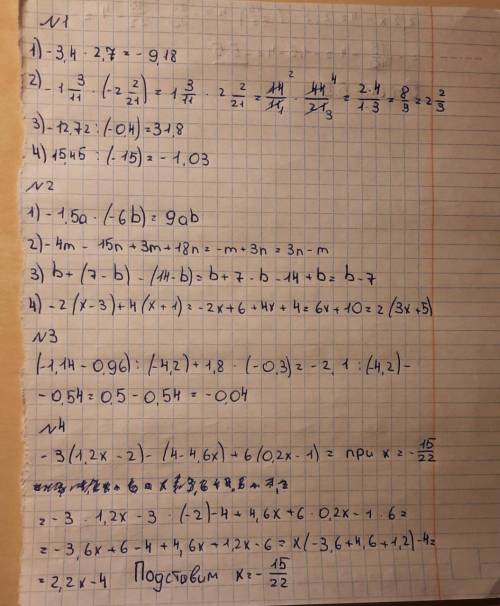 №1
1) -3,4 · 2,7 = -9,18
2) -1 3/11 · (-2 2/21) = 1 3/11 · 2 2/21 = 14/11 · 44/21 = 2·4/1·3 = 8/3 = 2 2/3
3) -12,72 : (-0,4) = 31,8
4) 15,45 : (-15) = -1,03
№2
1) -1,5a · (-6b) = 9ab
2) -4m - 15n + 3m + 18n = -m + 3n = 3n - m
3) b + (7 - b) - (14 - b) = b + 7 - b - 14 + b = b - 7
4) -2(x-3) + 4(x+1) = -2x + 6 + 4x + 4 = 6x + 10 = 2(3x+5)
№3
(-1,14 - 0,96) : (-4,2) + 1,8 · (-0,3) = -2,1 : (-4,2) -
- 0,54 = 0,5 - 0,54 = -0,04
№4
-3(1,2x - 2) - (4 - 4,6x) + 6(0,2x - 1) = при x = -15/22
= -3 · 1,2x - 3 · (-2) - 4 + 4,6x + 6 · 0,2x - 1 · 6 =
= -3,6x + 6 - 4 + 4,6x + 1,2x - 6 = x(-3,6 + 4,6 + 1,2) - 4 =
= 2,2x - 4 Подставим x = -15/22